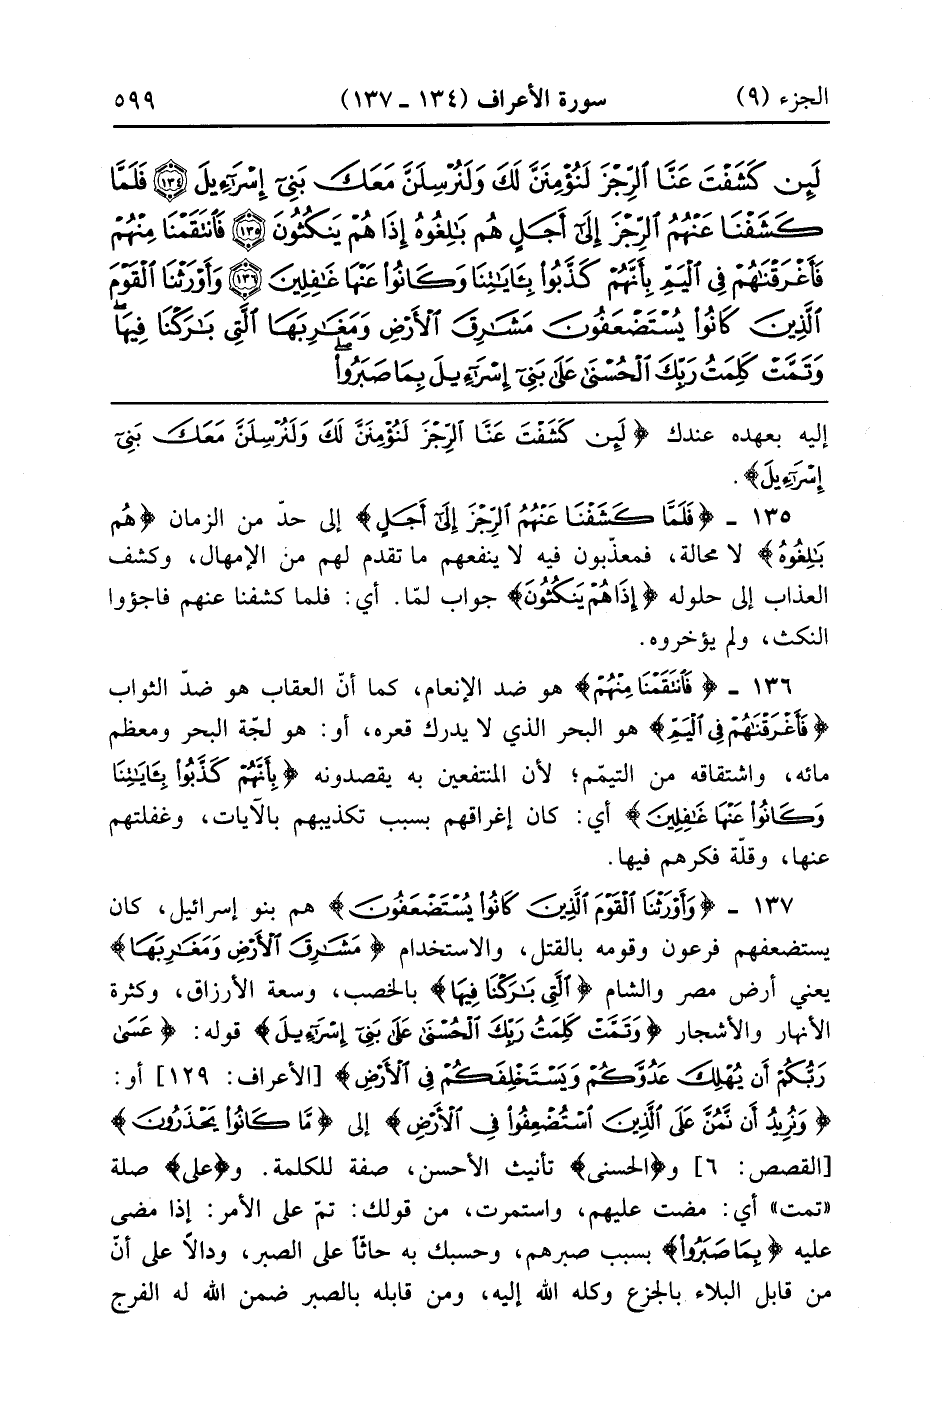 الجزء (٩) سورة الأعراف (١٣٤ - ١٣٧) ٥٩٩
لَئِن كَشَفْتَ عَنَّا ٱلرِّجْزَ لَنُؤْمِنَنَّ لَكَ وَلَنُرْسِلَنَّ مَعَكَ بَنِىٓ إِسْرَٰٓءِيلَ ١٣٤ فَلَمَّا
كَشَفْنَا عَنْهُمُ ٱلرِّجْزَ إِلَىٰٓ أَجَلٍ هُم بَٰلِغُوهُ إِذَا هُمْ يَنكُثُونَ ١٣٥ فَٱنتَقَمْنَا مِنْهُمْ
فَأَغْرَقْنَٰهُمْ فِى ٱلْيَمِّ بِأَنَّهُمْ كَذَّبُوا۟ بِـَٔايَٰتِنَا وَكَانُوا۟ عَنْهَا غَٰفِلِينَ ١٣٦ وَأَوْرَثْنَا ٱلْقَوْمَ
ٱلَّذِينَ كَانُوا۟ يُسْتَضْعَفُونَ مَشَٰرِقَ ٱلْأَرْضِ وَمَغَٰرِبَهَا ٱلَّتِى بَٰرَكْنَا فِيهَا ۖ
وَتَمَّتْ كَلِمَتُ رَبِّكَ ٱلْحُسْنَىٰ عَلَىٰ بَنِىٓ إِسْرَٰٓءِيلَ بِمَا صَبَرُوا۟ ۖ
إليه بعهده عندك ﴿لَئِن كَشَفْتَ عَنَّا ٱلرِّجْزَ لَنُؤْمِنَنَّ لَكَ وَلَنُرْسِلَنَّ مَعَكَ بَنِىٓ
إِسْرَٰٓءِيلَ﴾.
١٣٥ - ﴿فَلَمَّا كَشَفْنَا عَنْهُمُ ٱلرِّجْزَ إِلَىٰٓ أَجَلٍ﴾ إلى حدّ من الزمان ﴿هُم
بَٰلِغُوهُ﴾ لا محالة، فمعذّبون فيه لا ينفعهم ما تقدم لهم من الإمهال، وكشف
العذاب إلى حلوله ﴿إِذَا هُمْ يَنكُثُونَ﴾ جواب لمّا. أي: فلما كشفنا عنهم فاجؤوا
النكث، ولم يؤخروه.
١٣٦ - ﴿فَٱنتَقَمْنَا مِنْهُمْ﴾ هو ضد الإنعام، كما أنّ العقاب هو ضدّ الثواب
﴿فَأَغْرَقْنَٰهُمْ فِى ٱلْيَمِّ﴾ هو البحر الذي لا يدرك قعره، أو: هو لجّة البحر ومعظم
مائه، واشتقاقه من التيمّم؛ لأن المنتفعين به يقصدونه ﴿بِأَنَّهُمْ كَذَّبُوا۟ بِـَٔايَٰتِنَا
وَكَانُوا۟ عَنْهَا غَٰفِلِينَ﴾ أي: كان إغراقهم بسبب تكذيبهم بالآيات، وغفلتهم
عنها، وقلّة فكرهم فيها.
١٣٧ - ﴿وَأَوْرَثْنَا ٱلْقَوْمَ ٱلَّذِينَ كَانُوا۟ يُسْتَضْعَفُونَ﴾ هم بنو إسرائيل، كان
يستضعفهم فرعون وقومه بالقتل، والاستخدام ﴿مَشَٰرِقَ ٱلْأَرْضِ وَمَغَٰرِبَهَا﴾
يعني أرض مصر والشام ﴿ٱلَّتِى بَٰرَكْنَا فِيهَا﴾ بالخصب، وسعة الأرزاق، وكثرة
الأنهار والأشجار ﴿وَتَمَّتْ كَلِمَتُ رَبِّكَ ٱلْحُسْنَىٰ عَلَىٰ بَنِىٓ إِسْرَٰٓءِيلَ﴾ قوله: ﴿عَسَىٰ
رَبُّكُمْ أَن يُهْلِكَ عَدُوَّكُمْ وَيَسْتَخْلِفَكُمْ فِى ٱلْأَرْضِ﴾ [الأعراف: ١٢٩] أو:
﴿وَنُرِيدُ أَن نَّمُنَّ عَلَى ٱلَّذِينَ ٱسْتُضْعِفُوا۟ فِى ٱلْأَرْضِ﴾ إلى ﴿مَّا كَانُوا۟ يَحْذَرُونَ﴾
[القصص: ٦] و﴿الحسنى﴾ تأنيث الأحسن، صفة للكلمة. و﴿على﴾ صلة
«تمت» أي: مضت عليهم، واستمرت، من قولك: تمّ على الأمر: إذا مضى
عليه ﴿بِمَا صَبَرُوا۟﴾ بسبب صبرهم، وحسبك به حاثّاً على الصبر، ودالاً على أنّ
من قابل البلاء بالجزع وكله الله إليه، ومن قابله بالصبر ضمن الله له الفرج